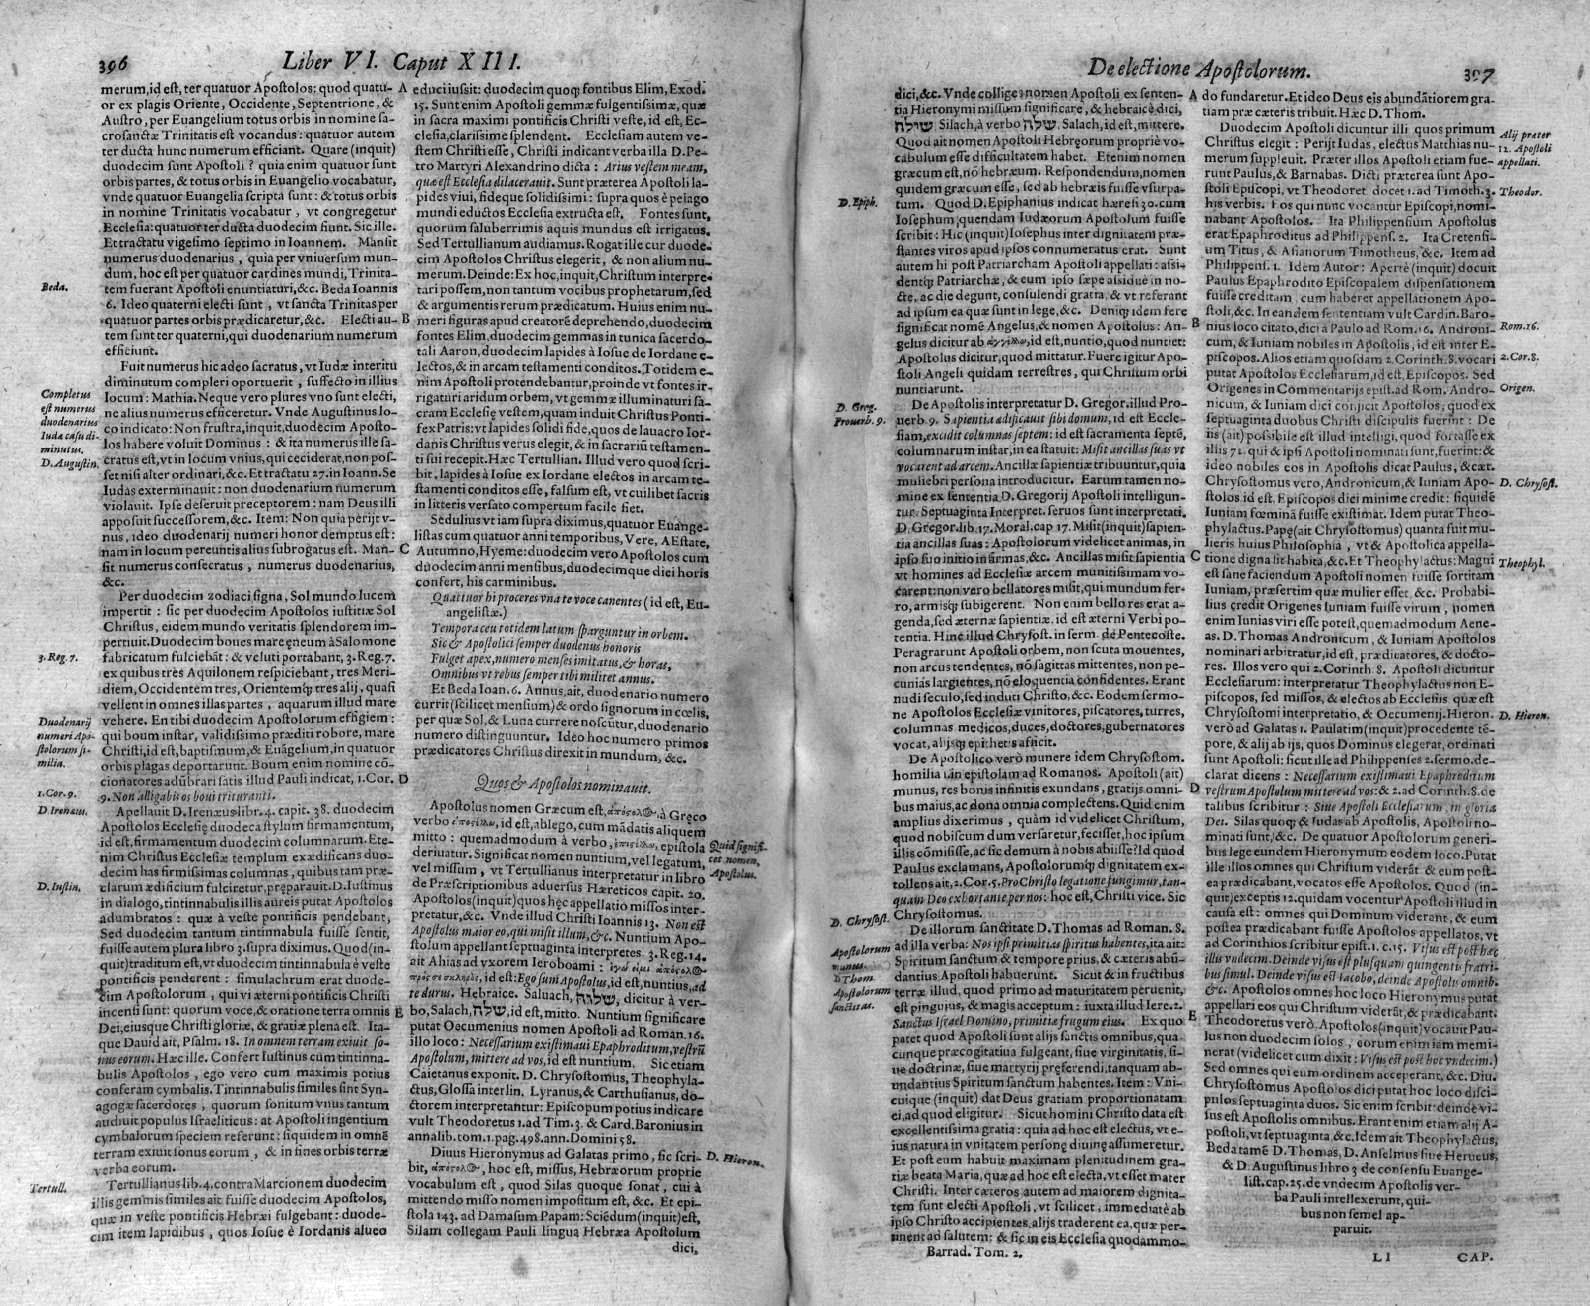 396
Liber VI. Caput XIII.
merum, id est, ter quatuor Apostolos: quod quatu-
or ex plagis Oriente, Occidente, Septentrione, &
Austro, per Euangelium totus orbis in nomine sa-
crosanctæ Trinitatis est vocandus: quatuor autem
ter ducta hunc numerum efficiant. Quare (inquit)
duodecim sunt Apostoli? quia enim quatuor sunt
orbis partes, & totus orbis in Euangelio vocabatur,
vnde quatuor Euangelia scripta sunt: & totus orbis
in nomine Trinitatis vocabatur, vt congregetur
Ecclesia: quatuor ter ducta duodecim siunt. Sic ille.
Et tractatu vigesimo septimo in Ioannem. Mansit
numerus duodenarius, quia per vniuersum mun-
dum, hoc est per quatuor cardines mundi, Trinita-
tem fuerant Apostoli enuntiaturi, &c. Beda Ioannis
6. Ideo quaterni electi sunt, vt sancta Trinitas per
quatuor partes orbis prædicaretur, &c. Electi au-
tem sunt ter quaterni, qui duodenarium numerum
efficiunt.
Fuit numerus hic adeo sacratus, vt Iudæ interitu
diminutum compleri oportuerit, suffecto in illius
locum: Mathia. Neque vero plures vno sunt electi,
ne alius numerus efficeretur. Vnde Augustinus lo-
co indicato: Non frustra, inquit, duodecim Aposto-
los habere voluit Dominus: & ita numerus ille sa-
cratus est, vt in locum vnius, qui ceciderat, non pos-
set nisi alter ordinari, &c. Et tractatu 27. in Ioann. Se
Iudas exterminauit: non duodenarium numerum
violauit. Ipse deseruit preceptorem: nam Deus illi
apposuit successorem, &c. Item: Non quia perijt v-
nus, ideo duodenarij numeri honor demptus est:
nam in locum pereuntis alius subrogatus est. Man-
sit numerus consecratus, numerus duodenarius,
&c.
Per duodecim zodiaci signa, Sol mundo lucem
impertit: sic per duodecim Apostolos iustitiæ Sol
Christus, eidem mundo veritatis splendorem im-
pertiuit. Duodecim boues mare ęneum à Salomone
fabricatum fulciebãt: & veluti portabant, 3. Reg. 7.
ex quibus tres Aquilonem respiciebant, tres Meri-
diem, Occidentem tres, Orientemq́; tres alij, quasi
vellent in omnes illas partes, aquarum illud mare
vehere. En tibi duodecim Apostolorum effigiem:
qui boum instar, validissimo præditi robore, mare
Christi, id est, baptismum, & Euãgelium, in quatuor
orbis plagas deportarunt. Boum enim nomine cō-
cionatores adũbrari satis illud Pauli indicat, 1. Cor.
9. Non alligabis os boui trituranti.
Appellauit D. Irenæus libr. 4. capit. 38. duodecim
Apostolos Ecclesię duodecastylum firmamentum,
id est, firmamentum duodecim columnarum. Ete-
nim Christus Ecclesiæ templum exædificans duo-
decim has firmissimas columnas, quibus tam præ-
clarum ædificium fulciretur, pręparauit. D. Iustinus
in dialogo, tintinnabulis illis aureis putat Apostolos
adumbratos: quæ à veste pontificis pendebant,
Sed duodecim tantum tintinnabula fuisse sentit,
fuisse autem plura libro 3. supra diximus. Quod (in-
quit) traditum est, vt duodecim tintinnabula è veste
pontificis penderent: simulachrum erat duode-
cim Apostolorum, qui vi æterni pontificis Christi
incensi sunt: quorum voce, & oratione terra omnis
Dei, eiusque Christi gloriæ, & gratiæ plena est. Ita-
que Dauid ait, Psalm. 18. In omnem terram exiuit so-
nus eorum. Hæc ille. Confert Iustinus cum tintinna-
bulis Apostolos, ego vero cum maximis potius
conferam cymbalis. Tintinnabulis similes sint Syn-
agogæ sacerdotes, quorum sonitum vnus tantum
audiuit populus Israeliticus: at Apostoli ingentium
cymbalorum speciem referunt: siquidem in omnē
terram exiuit sonus eorum, & in fines orbis terræ
verba eorum.
Tertullianus lib. 4. contra Marcionem duodecim
illis gemmis similes ait fuisse duodecim Apostolos,
quæ in veste pontificis Hebræi fulgebant: duode-
cim item lapidibus, quos Iosue è Iordanis alueo
Beda.
Completus
est numerus
duodenarius
Iuda casu di-
minutus.
D. Augustin.
3. Reg. 7.
Duodenarij
numeri Apo-
stolorum si-
milia.
1. Cor. 9.
D. Irenæus.
D. Iustin.
Tertull.
A
B
C
D
E
educi iussit: duodecim quoq; fontibus Elim, Exod.
15. Sunt enim Apostoli gemmæ fulgentissimæ, quæ
in sacra maximi pontificis Christi veste, id est, Ec-
clesia, clarissime splendent. Ecclesiam autem ve-
stem Christi esse, Christi indicant verba illa D. Pe-
tro Martyri Alexandrino dicta: Arius vestem meam,
quæ est Ecclesia dilacerauit. Sunt præterea Apostoli la-
pides viui, fideque solidissimi: supra quos è pelago
mundi eductos Ecclesia extructa est. Fontes sunt,
quorum saluberrimis aquis mundus est irrigatus.
Sed Tertullianum audiamus. Rogat ille cur duode-
cim Apostolos Christus elegerit, & non alium nu-
merum. Deinde: Ex hoc, inquit, Christum interpre-
tari possem, non tantum vocibus prophetarum, sed
& argumentis rerum prædicatum. Huius enim nu-
meri figuras apud creatorē deprehendo, duodecim
fontes Elim, duodecim gemmas in tunica sacerdo-
tali Aaron, duodecim lapides à Iosue de Iordane e-
lectos, & in arcam testamenti conditos. Totidem e-
nim Apostoli protendebantur, proinde vt fontes ir-
rigaturi aridum orbem, vt gemmæ illuminaturi sa-
cram Ecclesię vestem, quam induit Christus Ponti-
fex Patris: vt lapides solidi fide, quos de lauacro Ior-
danis Christus verus elegit, & in sacrariũ testamen-
ti sui recepit. Hæc Tertullian. Illud vero quod scri-
bit, lapides à Iosue ex Iordane electos in arcam te-
stamenti conditos esse, falsum est, vt cuilibet sacris
in litteris versato compertum facile fiet.
Sedulius vt iam supra diximus, quatuor Euange-
listas cum quatuor anni temporibus, Vere, AEstate,
Autumno, Hyeme: duodecim vero Apostolos cum
duodecim anni mensibus, duodecimque diei horis
confert, his carminibus.
Quattuor hi proceres vna te voce canentes (id est, Eu-
angelistæ.)
Tempora ceu totidem latum sparguntur in orbem.
Sic & Apostolici semper duodenus honoris
Fulget apex, numero menses imitatus, & horas,
Omnibus vt rebus semper tibi militet annus.
Et Beda Ioan. 6. Annus, ait, duodenario numero
currit (scilicet mensium) & ordo signorum in cœlis,
per quæ Sol, & Luna currere noscũtur, duodenario
numero distinguuntur. Ideo hoc numero primos
prædicatores Christus direxit in mundum, &c.
Quos & Apostolos nominauit.
Apostolus nomen Græcum est, ἀπόςολ@, à Gręco
verbo ἀποςέλλω, id est, ablego, cum mãdatis aliquem
mitto: quemadmodum à verbo, ἐπιςέλλω, epistola
deriuatur. Significat nomen nuntium, vel legatum,
vel missum, vt Tertullianus interpretatur in libro
de Præscriptionibus aduersus Hæreticos capit. 20.
Apostolos (inquit) quos hęc appellatio missos inter-
pretatur, &c. Vnde illud Christi Ioannis 13. Non est
Apostolus maior eo, qui misit illum, &c. Nuntium Apo-
stolum appellant septuaginta interpretes 3. Reg. 14.
ait Ahias ad vxorem Ieroboami: ἐγώ εἰμι ἀπόςολ@
πρός σε σκληρός, id est: Ego sum Apostolus, id est, nuntius, ad
te durus. Hebraice. Saluach, שלוח, dicitur à ver-
bo, Salach, שלח, id est, mitto. Nuntium significare
putat Oecumenius nomen Apostoli ad Roman. 16.
illo loco: Necessarium existimaui Epaphroditum, vestrũ
Apostolum, mittere ad vos, id est nuntium. Sic etiam
Caietanus exponit. D. Chrysostomus, Theophyla-
ctus, Glossa interlin. Lyranus, & Carthusianus, do-
ctorem interpretantur: Episcopum potius indicare
vult Theodoretus 1. ad Tim. 3. & Card. Baronius in
annalib. tom. 1. pag. 498. ann. Domini 58.
Diuus Hieronymus ad Galatas primo, sic scri-
bit, ἀπόςολ@, hoc est, missus, Hebræorum proprie
vocabulum est, quod Silas quoque sonat, cui à
mittendo misso nomen impositum est, &c. Et epi-
stola 143. ad Damasum Papam: Sciēdum (inquit) est,
Silam collegam Pauli lingua Hebræa Apostolum
dici,
Quid signifi-
cet nomen,
Apostolus.
D. Hieron.
De electione Apostolorum.
397
dici, &c. Vnde collige: nomen Apostoli ex senten-
tia Hieronymi missum significare, & hebraicè dici,
שילח. Silach, à verbo שלח. Salach, id est, mittere.
Quod ait nomen Apostoli Hebręorum propriè vo-
cabulum esse difficultatem habet. Etenim nomen
græcum est, nō hebræum. Respondendum, nomen
quidem græcum esse, sed ab hebræis fuisse vsurpa-
tum. Quod D. Epiphanius indicat hæresi 30. cum
Iosephum, quendam Iudæorum Apostolum fuisse
scribit: Hic (inquit) Iosephus inter dignitatem præ-
stantes viros apud ipsos connumeratus erat. Sunt
autem hi post Patriarcham Apostoli appellati: assi-
dentq́; Patriarchæ, & cum ipso sæpe assidue in no-
cte, ac die degunt, consulendi gratia, & vt referant
ad ipsum ea quæ sunt in lege, &c. Deniq; idem fere
significat nomē Angelus, & nomen Apostolus: An-
gelus dicitur ab ἀγγέλλω, id est, nuntio, quod nuntiet:
Apostolus dicitur, quod mittatur. Fuere igitur Apo-
stoli Angeli quidam terrestres, qui Christum orbi
nuntiarunt.
De Apostolis interpretatur D. Gregor. illud Pro-
uerb. 9. Sapientia ædificauit sibi domum, id est Eccle-
siam, excidit columnas septem: id est sacramenta septē,
columnarum instar, in ea statuit: Misit ancillas suas vt
vocarent ad arcem. Ancillæ sapientiæ tribuuntur, quia
muliebri persona introducitur. Earum tamen no-
mine ex sententia D. Gregorij Apostoli intelligun-
tur. Septuaginta Interpret. seruos sunt interpretati.
D. Gregor. lib. 17. Moral. cap 17. Misit (inquit) sapien-
tia ancillas suas: Apostolorum videlicet animas, in
ipso suo initio infirmas, &c. Ancillas misit sapientia
vt homines ad Ecclesiæ arcem munitissimam vo-
carent: non vero bellatores misit, qui mundum fer-
ro, armisq́; subigerent. Non enim bello res erat a-
genda, sed æternæ sapientiæ, id est æterni Verbi po-
tentia. Hinc illud Chrysost. in serm. de Pentecoste.
Peragrarunt Apostoli orbem, non scuta mouentes,
non arcus tendentes, nō sagittas mittentes, non pe-
cunias largientes, nō eloquentia confidentes. Erant
nudi seculo, sed induti Christo, &c. Eodem sermo-
ne Apostolos Ecclesiæ vinitores, piscatores, turres,
columnas medicos, duces, doctores, gubernatores
vocat, alijsq́; epithetis afficit.
De Apostolico verò munere idem Chrysostom.
homilia 1. in epistolam ad Romanos. Apostoli (ait)
munus, res bonis infinitis exundans, gratijs omni-
bus maius, ac dona omnia complectens. Quid enim
amplius dixerimus, quàm id videlicet Christum,
quod nobiscum dum versaretur, fecisset, hoc ipsum
illis cōmisisse, ac sic demum à nobis abiisse? Id quod
Paulus exclamans, Apostolorumq́; dignitatem ex-
tollens ait, 2. Cor. 5. Pro Christo legatione fungimur, tan-
quam Deo exhortante per nos: hoc est, Christi vice. Sic
Chrysostomus.
De illorum sanctitate D. Thomas ad Roman. 8.
ad illa verba: Nos ipsi primitias spiritus habentes, ita ait:
Spiritum sanctum & tempore prius, & cæteris abũ-
dantius Apostoli habuerunt. Sicut & in fructibus
terræ illud, quod primo ad maturitatem peruenit,
est pinguius, & magis acceptum: iuxta illud Iere. 2.
Sanctus Israel Domino, primitiæ frugum eius. Ex quo
patet quod Apostoli sunt alijs sanctis omnibus, qua-
cunque præcogitatiua fulgeant, siue virginitatis, si-
ue doctrinæ, siue martyrij pręferendi, tanquam ab-
undantius Spiritum sanctum habentes. Item: Vni-
cuique (inquit) dat Deus gratiam proportionatam
ei, ad quod eligitur. Sicut homini Christo data est
excellentissima gratia: quia ad hoc est electus, vt e-
ius natura in vnitatem personę diuinę assumeretur.
Et post eum habuit maximam plenitudinem gra-
tiæ beata Maria, quæ ad hoc est electa, vt esset mater
Christi. Inter cæteros autem ad maiorem dignita-
tem sunt electi Apostoli, vt scilicet, immediatè ab
ipso Christo accipientes, alijs traderent ea, quæ per-
tinent ad salutem: & sic in eis Ecclesia quodammo-
Barrad. Tom. 2.
D. Epiph.
D. Greg.
Prouerb. 9.
D. Chrysost.
Apostolorum
munus.
D Thom.
Apostolorum
sanctitas.
A
B
C
D
E
do fundaretur. Et ideo Deus eis abundãtiorem gra-
tiam præ cæteris tribuit. Hæc D. Thom.
Duodecim Apostoli dicuntur illi quos primum
Christus elegit: Perijt Iudas, electus Matthias nu-
merum suppleuit. Præter illos Apostoli etiam fue-
runt Paulus, & Barnabas. Dicti præterea sunt Apo-
stoli Episcopi, vt Theodoret docet 1. ad Timoth. 3.
his verbis. Eos qui nunc vocantur Episcopi, nomi-
nabant Apostolos. Ita Philippensium Apostolus
erat Epaphroditus ad Philippens. 2. Ita Cretensi-
um Titus, & Asianorum Timotheus, &c. Item ad
Philippens. 1. Idem Autor: Apertè (inquit) docuit
Paulus Epaphrodito Episcopalem dispensationem
fuisse creditam, cum haberet appellationem Apo-
stoli, &c. In eandem sententiam vult Cardin. Baro-
nius loco citato, dici a Paulo ad Rom. 16. Androni-
cum, & Iuniam nobiles in Apostolis, id est inter E-
piscopos. Alios etiam quosdam 2. Corinth. 8. vocari
putat Apostolos Ecclesiarum, id est, Episcopos. Sed
Origenes in Commentarijs epist. ad Rom. Andro-
nicum, & Iuniam dici conijcit Apostolos, quod ex
septuaginta duobus Christi discipulis fuerint: De
iis (ait) possibile est illud intelligi, quod fortasse ex
illis 72. qui & ipsi Apostoli nominati sunt, fuerint: &
ideo nobiles eos in Apostolis dicat Paulus, & cæt.
Chrysostomus vero, Andronicum, & Iuniam Apo-
stolos id est. Episcopos dici minime credit: siquidē
Iuniam fœminã fuisse existimat. Idem putat Theo-
phylactus. Papę (ait Chrysostomus) quanta fuit mu-
lieris huius Philosophia, vt & Apostolica appella-
tione digna sit habita, &c. Et Theophylactus: Magni
est sane faciendum Apostoli nomen fuisse sortitam
Iuniam, præsertim quæ mulier esset, &c. Probabi-
lius credit Origenes Iuniam fuisse virum, nomen
enim Iunias viri esse potest, quemadmodum Aene-
as. D. Thomas Andronicum, & Iuniam Apostolos
nominari arbitratur, id est, prædicatores, & docto-
res. Illos vero qui 2. Corinth. 8. Apostoli dicuntur
Ecclesiarum: interpretatur Theophylactus non E-
piscopos, sed missos, & electos ab Ecclesiis quæ est
Chrysostomi interpretatio, & Occumenij. Hieron.
verò ad Galatas 1. Paulatim (inquit) procedente tē-
pore, & alij ab ijs, quos Dominus elegerat, ordinati
sunt Apostoli: sicut ille ad Philippenses 2. sermo. de-
clarat dicens: Necessarium existimaui Epaphroditum
vestrum Apostolum mittere ad vos: & 2. ad Corinth. 8. de
talibus scribitur: Siue Apostoli Ecclesiarum, in gloria
Dei. Silas quoq; & Iudas ab Apostolis, Apostoli no-
minati sunt, &c. De quatuor Apostolorum generi-
bus lege eundem Hieronymum eodem loco. Putat
ille illos omnes qui Christum viderãt & eum post-
ea prædicabant, vocatos esse Apostolos. Quod (in-
quit) exceptis 12. quidam vocentur Apostoli illud in
causa est: omnes qui Dominum viderant, & eum
postea prædicabant fuisse Apostolos appellatos, vt
ad Corinthios scribitur epist. 1. c. 15. Visus est post hæc
illis vndecim. Deinde visus est plusquam quingentis fratri-
bus simul. Deinde visus est Iacobo, deinde Apostolis omnib.
&c. Apostolos omnes hoc loco Hieronymus putat
appellari eos qui Christum viderãt, & prædicabant.
Theodoretus verò Apostolos (inquit) vocauit Pau-
lus non duodecim solos, eorum enim iam memi-
nerat (videlicet cum dixit: Visus est post hoc vndecim.)
Sed omnes qui eum ordinem acceperant, &c. Diu.
Chrysostomus Apostolos dici putat hoc loco disci-
pulos septuaginta duos. Sic enim scribit: deinde vi-
sus est Apostolis omnibus. Erant enim etiam alij A-
postoli, vt septuaginta &c. Idem ait Theophylactus,
Beda tamē D. Thomas, D. Anselmus siue Herueus,
& D. Augustinus libro 3 de consensu Euange-
list. cap. 25. de vndecim Apostolis ver-
ba Pauli intellexerunt, qui-
bus non semel ap-
paruit.
Alij præter
12. Apostoli
appellati.
Theodor.
Rom. 16.
2. Cor. 8.
Origen.
D. Chrysost.
Theophyl.
D. Hieron.
Ll
CAP.